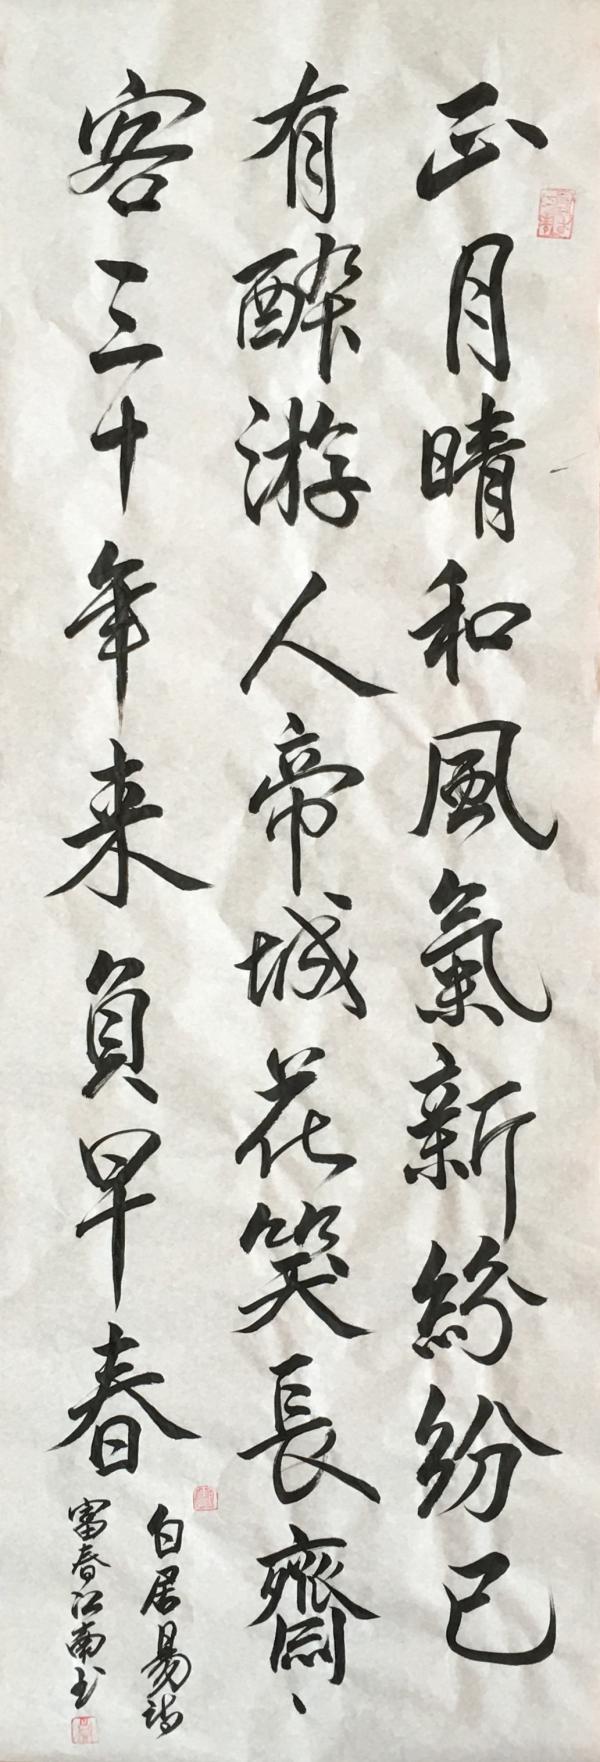 正月晴和風氣新紛紛已
有醉游人帝城花笑長齋、
客三十年来負早春
白居易詩
富春江南书